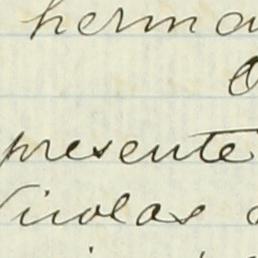 herma
presente
Nicolas